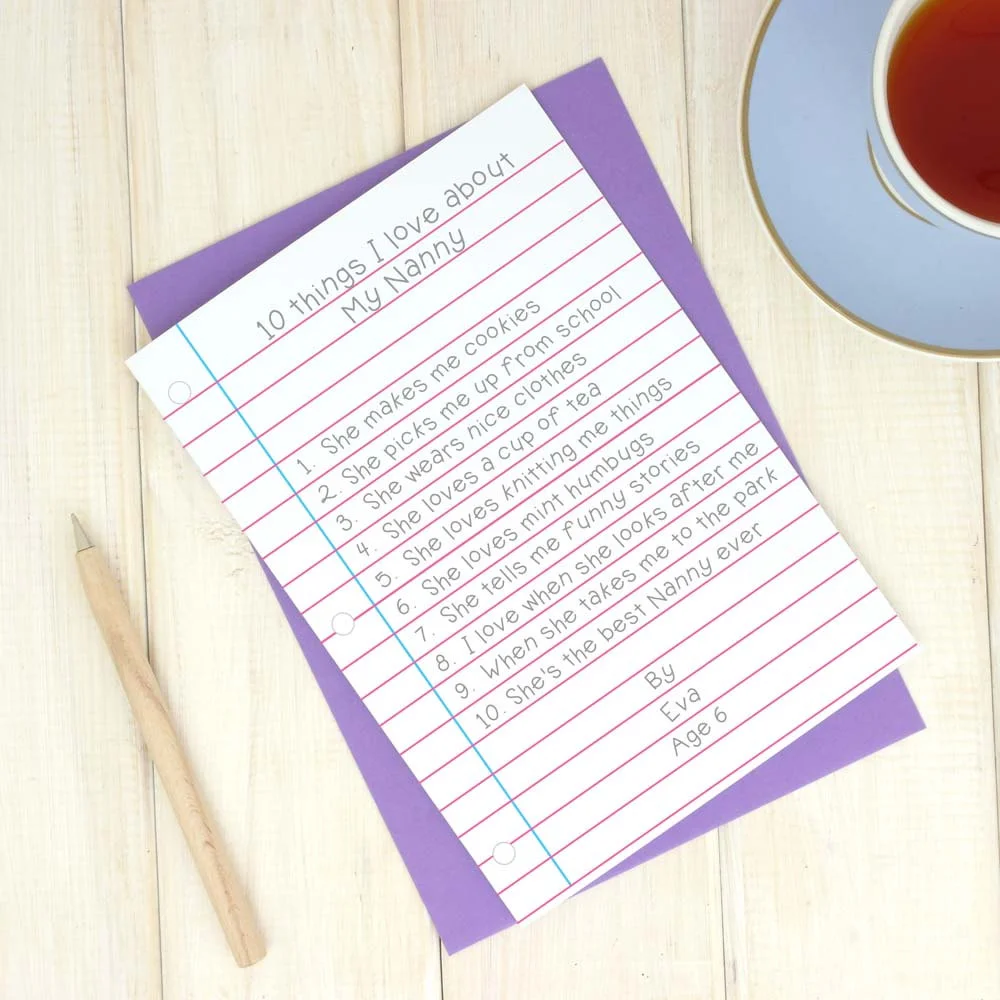 10 things I love about
My Nanny
1. She makes me cookies
2. She picks me up from school
3. She wears nice clothes
4. She loves a cup of tea
5. She loves knitting me things
6. She loves mint humbugs
7. She tells me funny stories
8. I love when she looks after me
9. When she takes me to the park
10. She's the best Nanny ever
By
Eva
Age 6